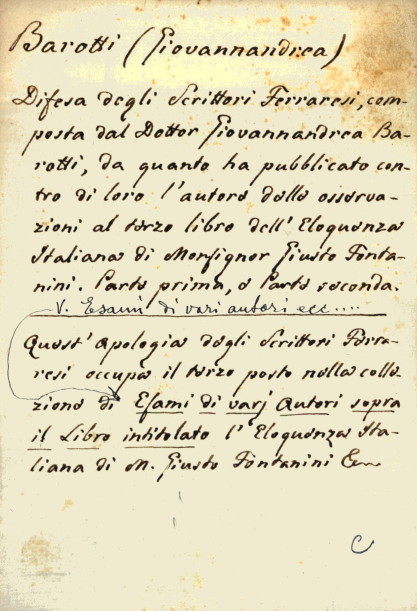 Barotti (Giovannandrea)
Difesa degli Scrittori Ferraresi, com-
posta dal Dottor Giovannandrea Ba-
rotti, da quanto ha pubblicato con-
tro di loro l'autore delle osserva-
zioni al terzo libro dell'Eloquenza
Italiana di Monsignor Giusto Fonta-
nini. Parte prima, e Parte seconda.
V. Esami di vari autori ecc....
Quest'Apologia degli Scrittori Ferra-
resi occupa il terzo posto nella colle
zione di Esami di varj Autori sopra
il Libro intitolato l'Eloquenza Ita-
liana di M. Giusto Fontanini
C